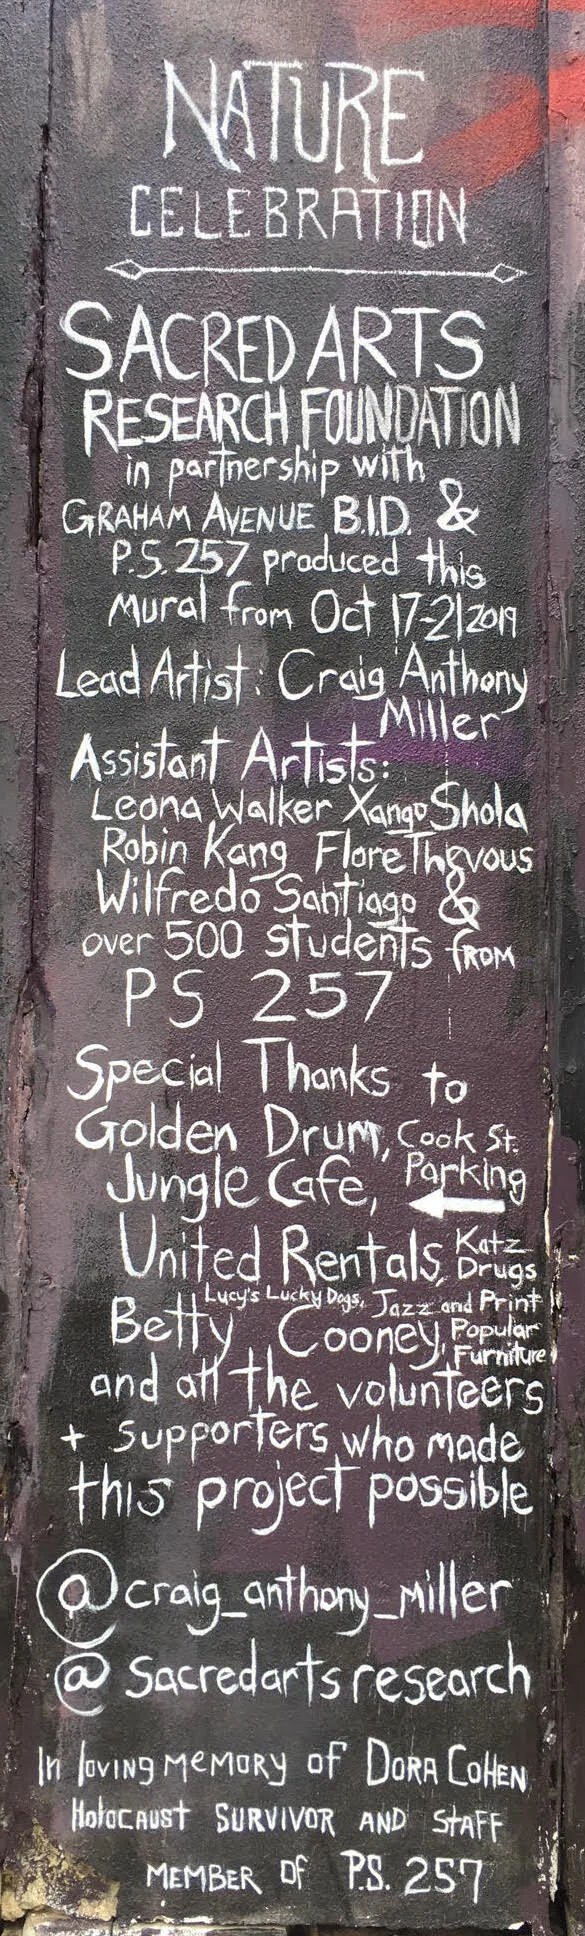 NATURE
CELEBRATION
SACRED ARTS
RESEARCH FOUNDATION
in partnership with
GRAHAM AVENUE B.I.D. &
P.S. 257 produced this
Mural from Oct 17-21 2019
Lead Artist: Craig Anthony
Miller
Assistant Artists:
Leona Walker Xango Shola
Robin Kang Flore Thevous
Wilfredo Santiago &
over 500 students from
PS 257
Special Thanks to
Golden Drum, Cook St.
Jungle Cafe, Parking
United Rentals, Katz
Drugs
Lucy's Lucky Dogs, Jazz and Print
Betty Cooney, Popular
Furniture
and all the volunteers
+ supporters who made
this project possible
@craig_anthony_miller
@sacredartsresearch
In loving memory of DORA COHEN
HOLOCAUST SURVIVOR AND STAFF
MEMBER OF P.S. 257